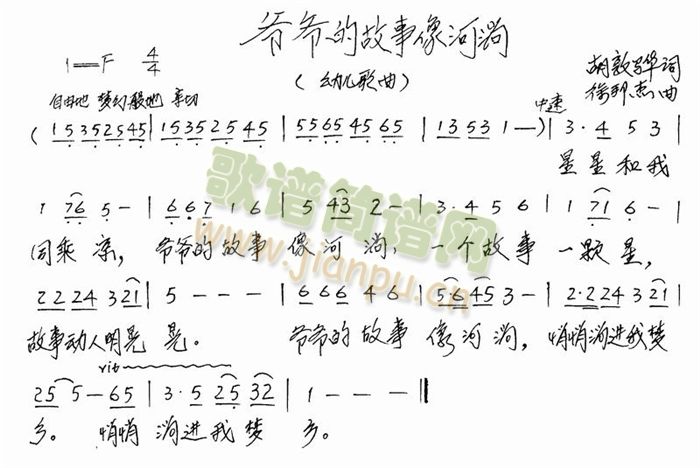 爷爷的故事像河淌
1=F 4/4
(幼儿歌曲)
胡敦骅词
徐邦杰曲
自由地 梦幻般地 亲切
中速
(15352545|15352545|55654565|1353 1—)|3·4 5 3|
星星和我
1 76 5 —|667 1 6|5 43 2 —|3·4 5 6|1 71 6 —|
同乘凉,爷爷的故事像河淌,一个故事一颗星,
2224 321|5 — — —|666 4 6|5·645 3 —|2·224 321|
故事动人明亮亮。爷爷的故事像河淌,悄悄淌进我梦
rit
25 5—65|3·5 25 32|1 — — —‖
乡。悄悄淌进我梦乡。
歌谱简谱网
www.jianpu.cn